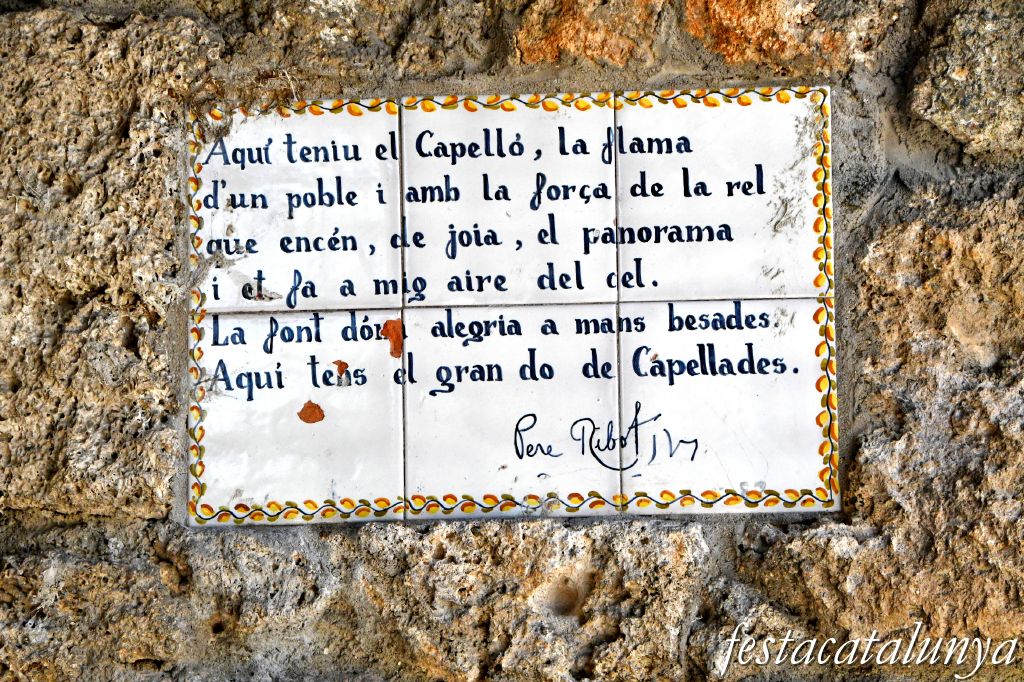 Aquí teniu el Capelló, la flama
d'un poble i amb la força de la rel
que encén, de joia, el panorama
i et fa a mig aire del cel.
La font dóna alegria a mans besades.
Aquí tens el gran do de Capellades.
Pere Ribot
festacatalunya